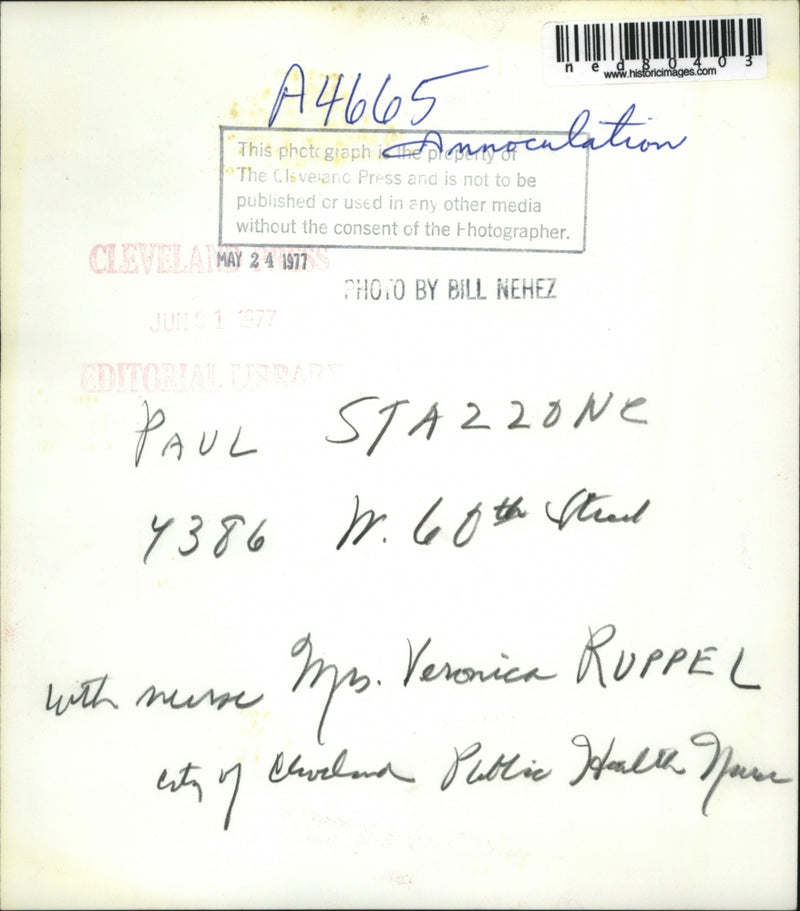 ned80403
www.historicimages.com
A4665
Annoculation
This photograph is the property of
The Cleveland Press and is not to be
published or used in any other media
without the consent of the Photographer.
CLEVELAND PRESS
MAY 24 1977
PHOTO BY BILL NEHEZ
JUN 1 1977
EDITORIAL LIBRARY
PAUL STAZZONE
4386 W. 60th Street
with nurse Mrs. Veronica RUPPEL
city of Cleveland Public Health Nurse